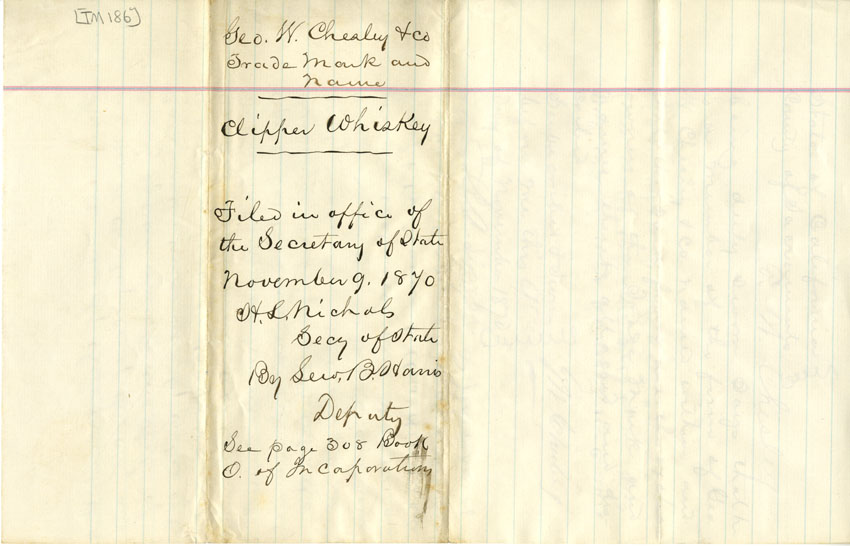 [TM 186]
Geo. W. Chesley & Co
Trade Mark and
Name
Clipper Whiskey
Filed in office of
the Secretary of State
November 9. 1870
H. L. Nichols
Secy of State
By Geo. B. Harris
Deputy
See page 308 Book
O. of Incorporations